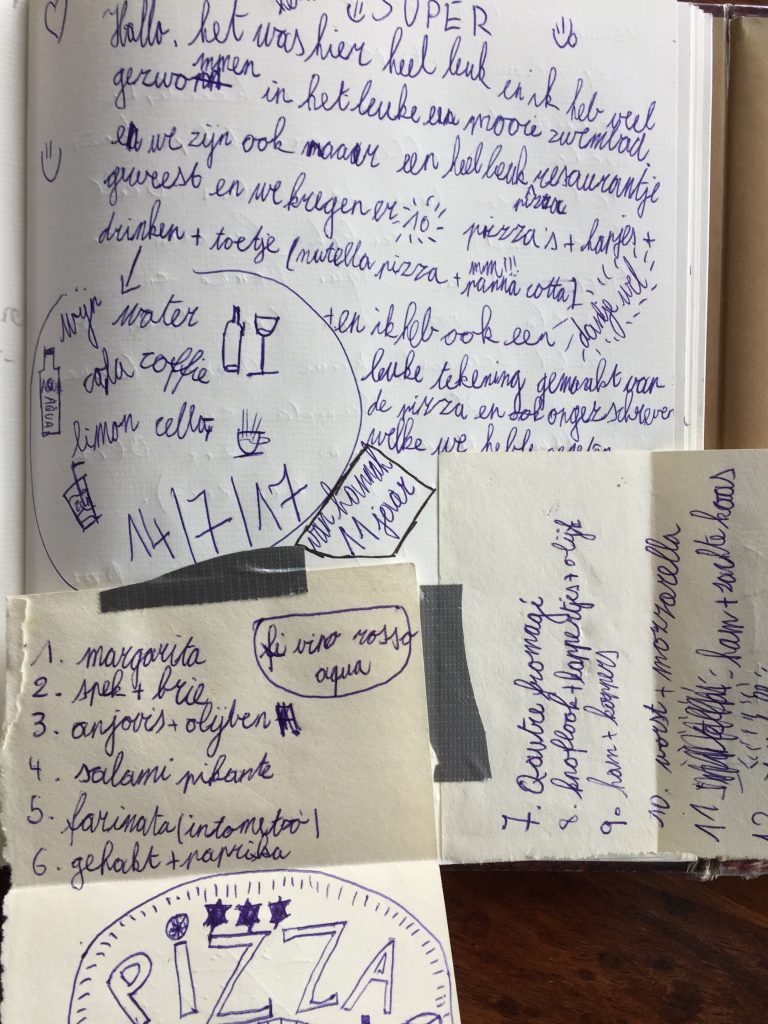 SUPER
Hallo, het was hier heel leuk en ik heb veel
gezwommen in het leuke en mooie zwembad,
en we zijn ook naar een heel leuk resaurantje
geweest en we kregen er 10 pizza's + hapjes +
pizza
drinken + toetje (nutella pizza + panna cotta)
mm!!!
dankje wel
wijn water
cola coffie
limon cello
AQUA
14/7/17
+ en ik heb ook een
leuke tekening gemaakt van
de pizza en ook ongeschreven
welke we hebbe gegeten
van hannah
11 jaar
1. margarita
2. spek + brie
3. anjovis + olijven
4. salami pikante
5. farinata (intometoo)
6. gehakt + paprika
vino rosso
aqua
7. Qautre fromagi
8. knoflook + kappertjes + olijf
9. ham + kappers
10. worst + mozzarella
11. ham + zachte kaas
12.
PIZZA